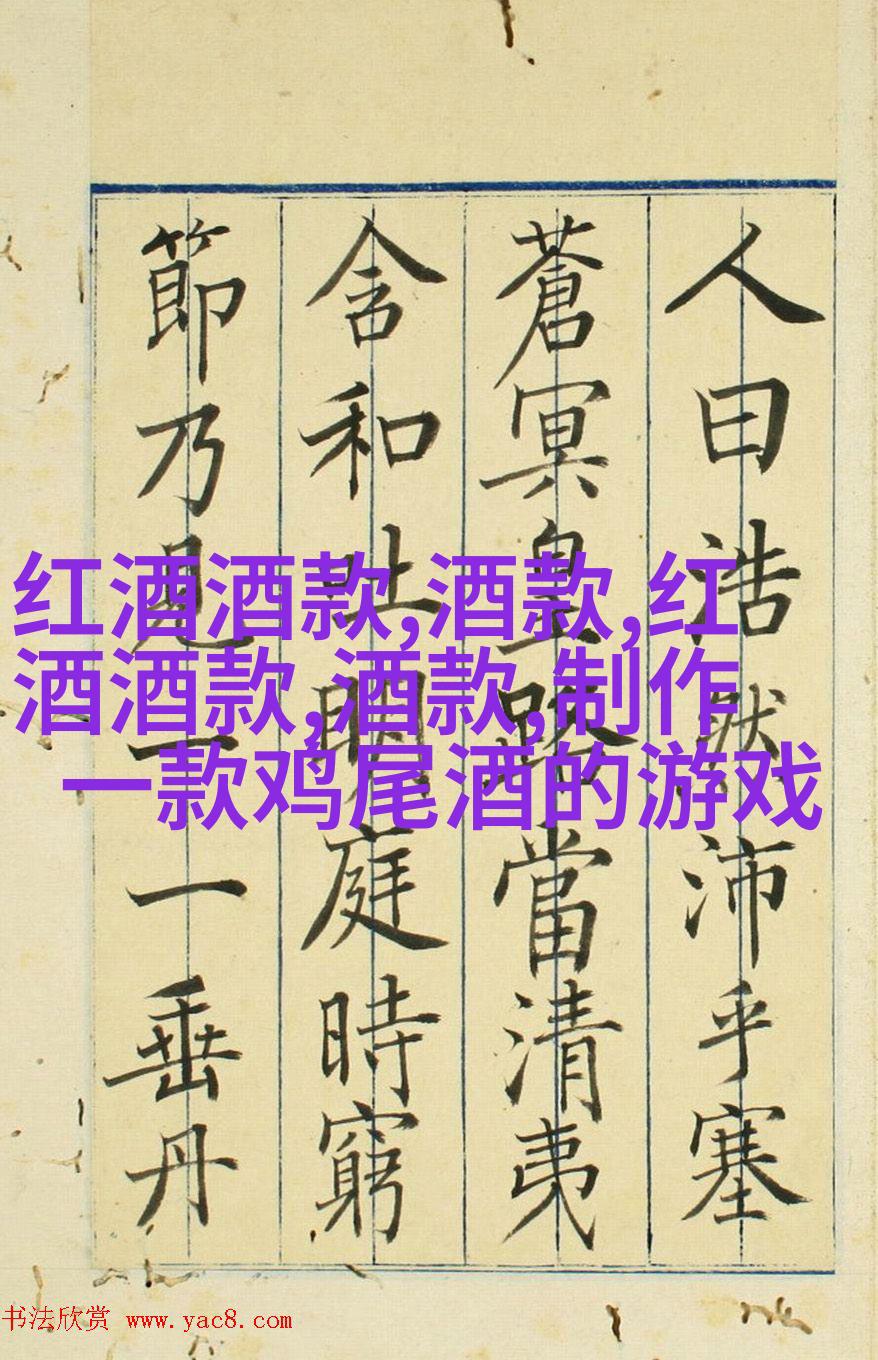 人曰浩然沛乎塞
蒼冥皇路當清夷
含和吐明庭時窮
節乃見一一垂丹
红酒酒款,酒款,红
酒酒款,酒款,制作
一款鸡尾酒的游戏
书法欣赏 www.yac8.com